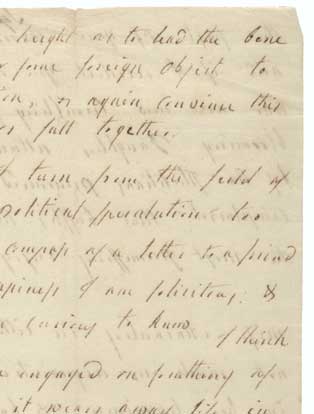 height as to lead the bone
some foreign object to
or again convince this
fall together.
turn from the field of
political speculation too
compass of a letter to a friend
happiness I am solicitous; &
curious to know
I think
engaged in
it wears away life in